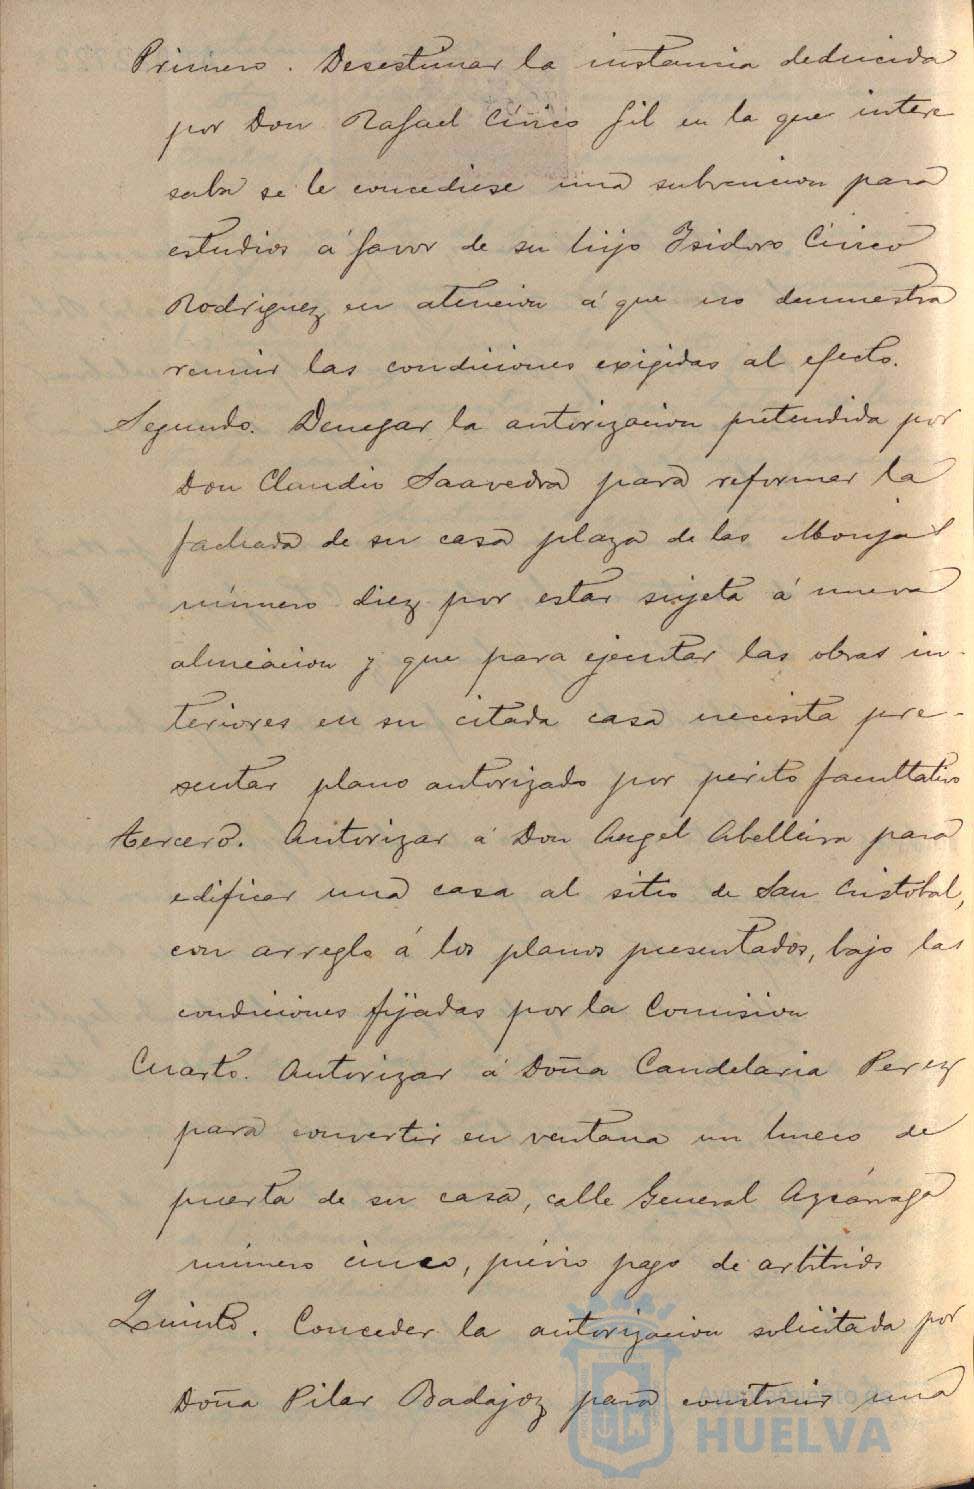 Primero. Desestimar la instancia deducida
por Don Rafael Cívico Gil en la que intere
saba se le concediese una subvencion para
estudios á favor de su hijo Isidoro Cívico
Rodriguez en atencion á que no demuestra
reunir las condiciones exigidas al efecto.
Segundo. Denegar la autorizacion pretendida por
Don Claudio Saavedra para reformar la
fachada de su casa plaza de las Monjas
número diez por estar sujeta á nueva
alineacion y que para ejecutar las obras in-
teriores en su citada casa necesita pre-
sentar plano autorizado por perito facultativo
tercero. Autorizar á Don Angel Abelleira para
edificar una casa al sitio de San Cristobal,
con arreglo á los planos presentados, bajo las
condiciones fijadas por la Comision
Cuarto. Autorizar á Doña Candelaria Perez
para convertir en ventana un hueco de
puerta de su casa, calle General Azcárraga
número cinco, prévio pago de arbitrios
Quinto. Conceder la autorizacion solicitada por
Doña Pilar Badajoz para construir una
Ayuntamiento de
HUELVA